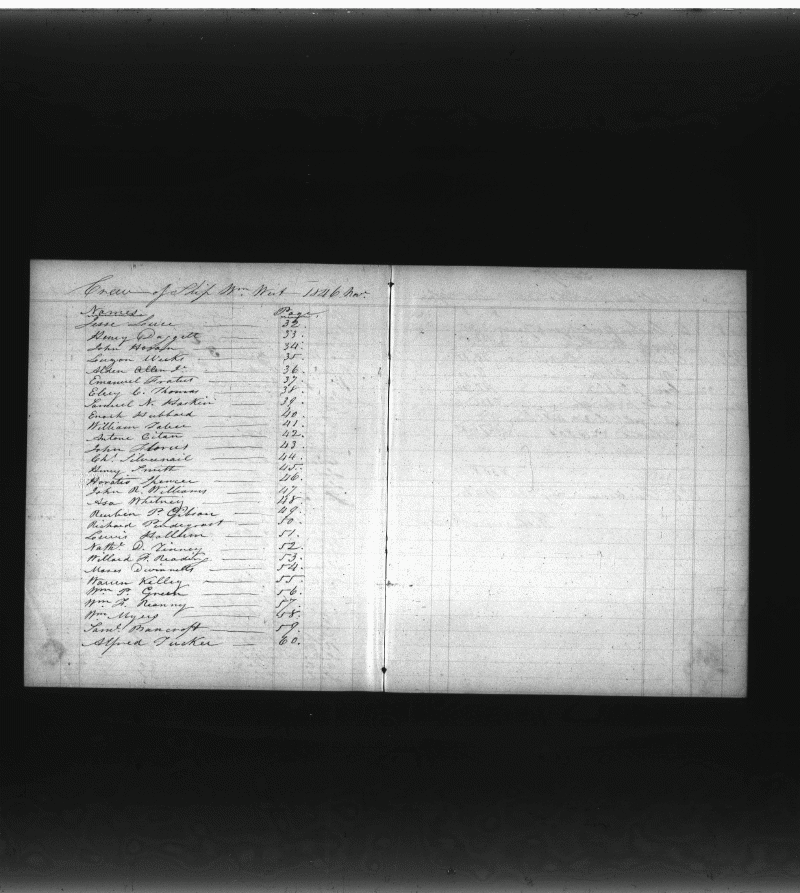 Crew of Ship Wm. West 1846 Nov.
Names. Page.
Jesse Luce 32.
Henry Daggett 33.
John 34.
Weeks 35.
Alden Allen Jr. 36.
Emanuel Frates 37.
Elery C. Thomas 38.
Samuel N. Haskin 39.
Enoch Hubbard 40.
William Taber 41.
Antone 42.
John 43.
Chs. Silvernail 44.
Henry Smith 45.
Horatio Spencer 46.
John R. Williams 47.
Asa Whitney 48.
Reuben P. Gibson 49.
Richard Pendegrast 50.
Lewis 51.
Nathl. D. Tinney 52.
Willard F. Reading 53.
Moses 54.
Warren Kelley 55.
Wm. P. Green 56.
Wm. H. 57.
Wm. Myers 58.
Saml. Bancroft 59.
Alfred Tucker 60.